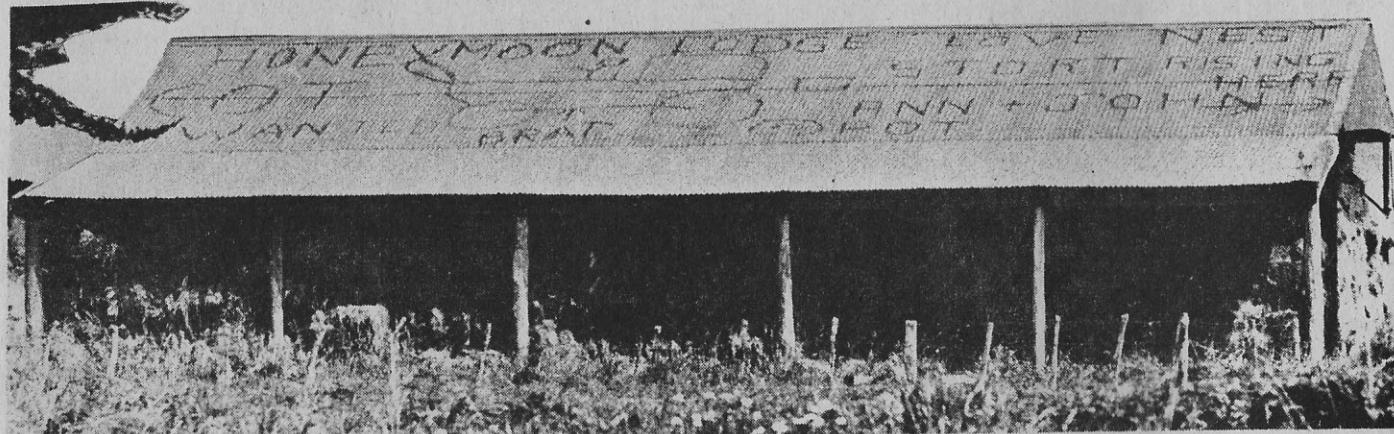 HONEYMOON LODGE LOVE NEST
START RISING
HERE
ANN + JOHN
WANTED BRAT